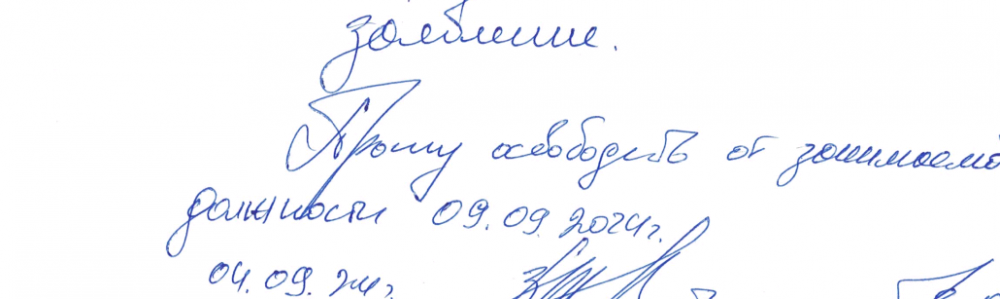 заявление.
Прошу освободить от занимаемо
должности 09.09.2024г.
04.09.24г.